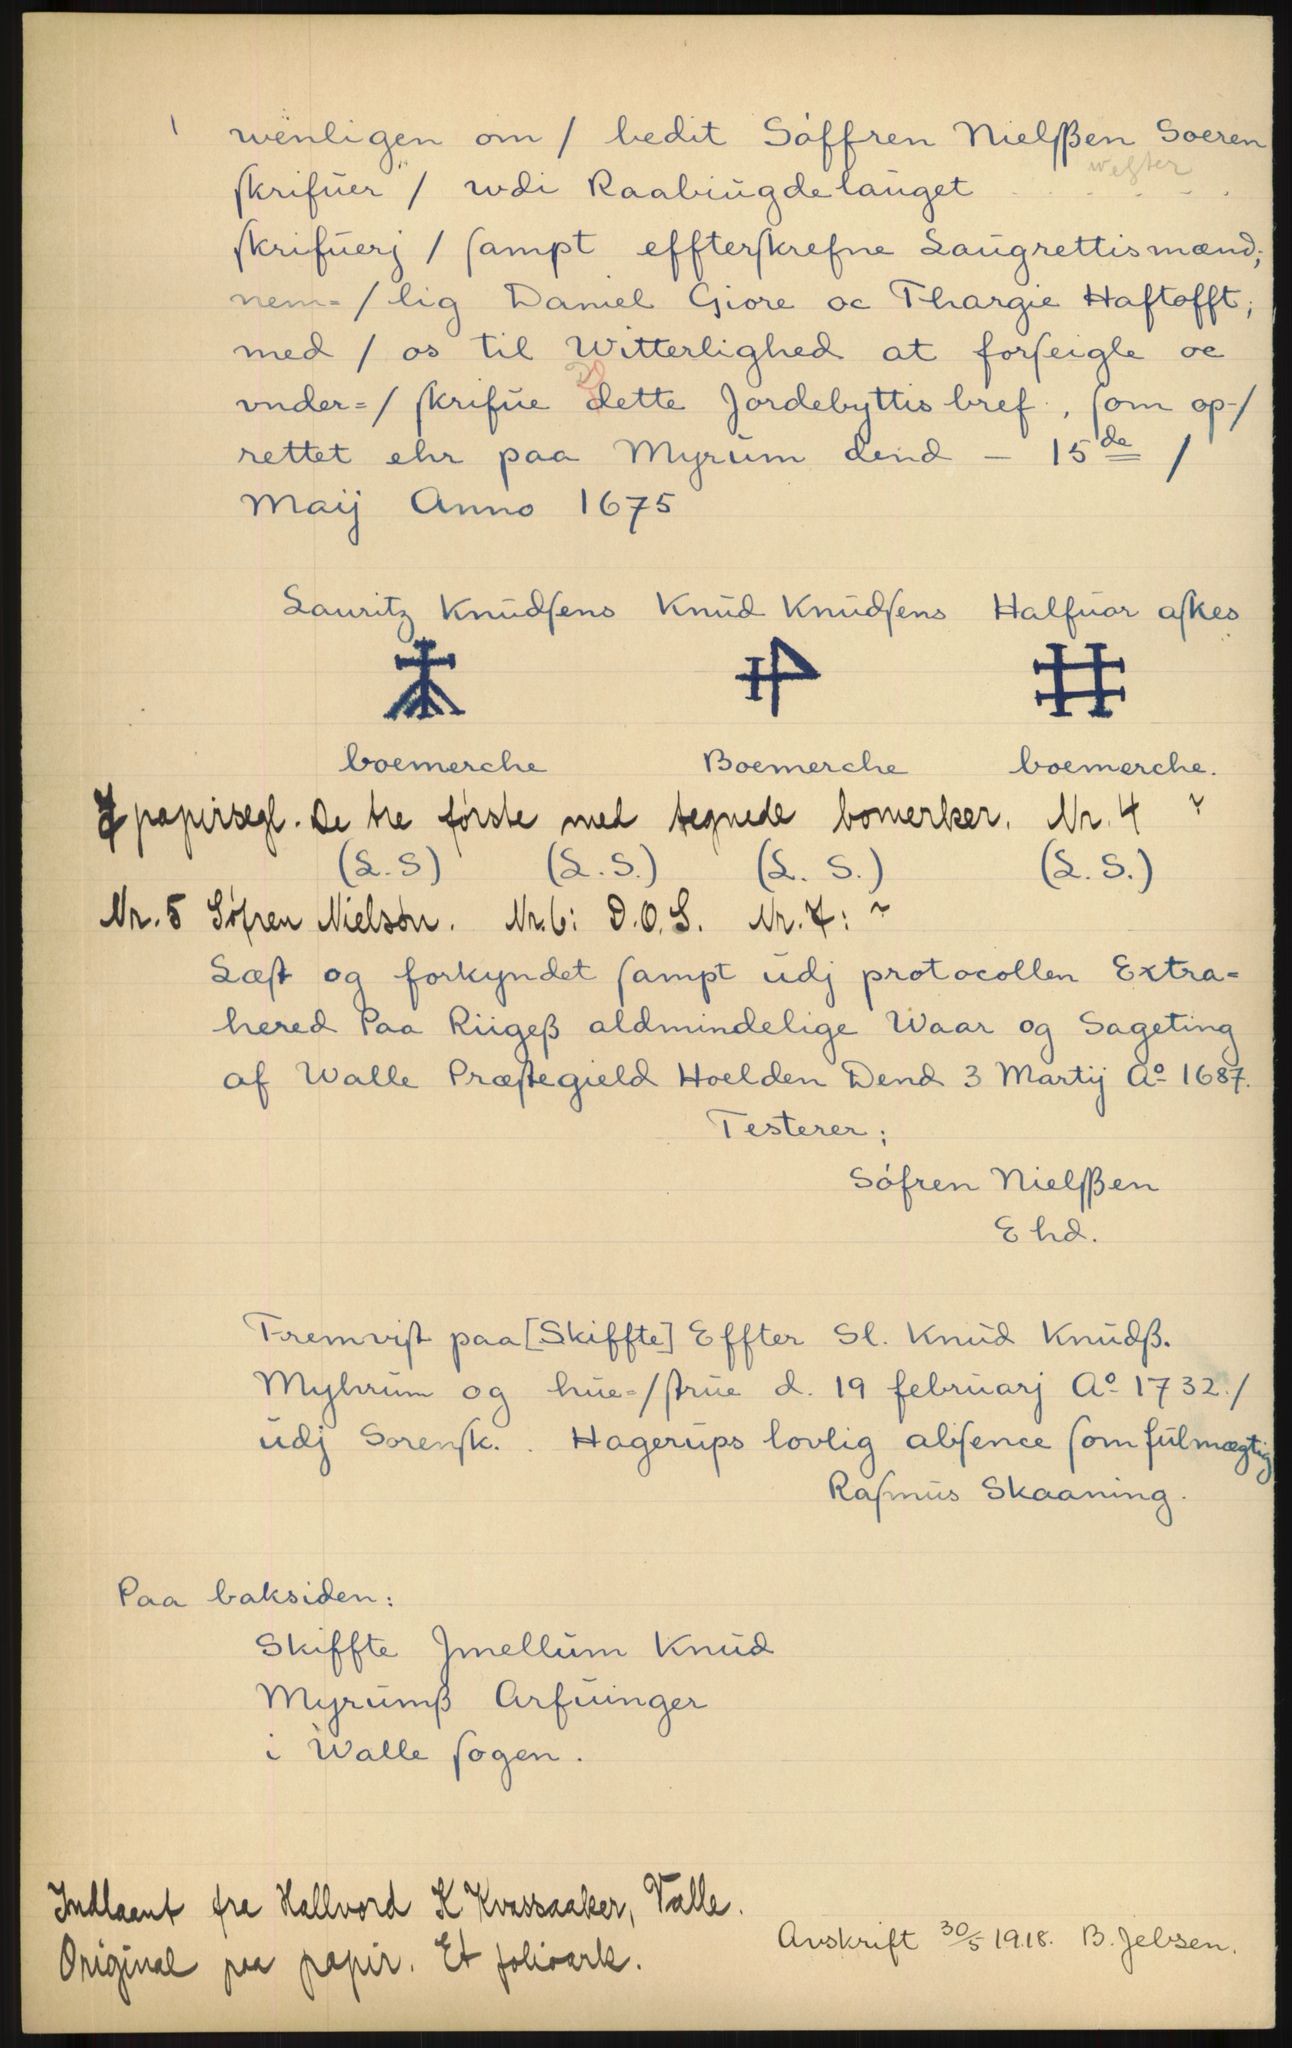 wenligen om / bedit Søffren Nielßen Soeren
skrifuer / udi Raabiugdelauget
wester
skrifuerj / sampt effterskrefne Laugrettismænd;
nem= / lig Daniel Giore oc Thargie Haftofft;
med / os til Witterlighed at forseigle oc
vnder= / skrifue dette Jordebyttis bref, som op-/
rettet ehr paa Myrum dend – 15de /
Maij Anno 1675
Lauritz Knudsens Knud Knudsens Halfuor askes
boemerche Boemerche boemerche.
7 papirsegl. De tre første med tegnede bomerker. Nr. 4 ?
(L.S) (L.S.) (L.S.) (L.S.)
Nr. 5 Søfren Nielsøn. Nr. 6: D.O.S. Nr. 7: ?
Læst og forkyndet sampt udj protocollen Extra=
hered Paa Riigeß aldmindelige Waar og Sageting
af Walle Præstegield Hoelden Dend 3 Martij Ao 1687.
Testerer;
Søfren Nielßen
Ehd.
Fremvist paa [Skiffte] Effter Sl. Knud Knudß.
Myhrum og hue=/strue d. 19 februarj Ao 1732./
udj Sorensk. Hagerups lovlig absence som fulmægtig
Rasmus Skaaning.
Paa baksiden:
Skiffte Jmellum Knud
Myrumß Arfuinger
i Walle sogen.
Indlaant fra Hallvord K Kvassaaker, Valle.
Original paa papir. Et folioark.
Avskrift 30/5 1918. B. Jebsen.